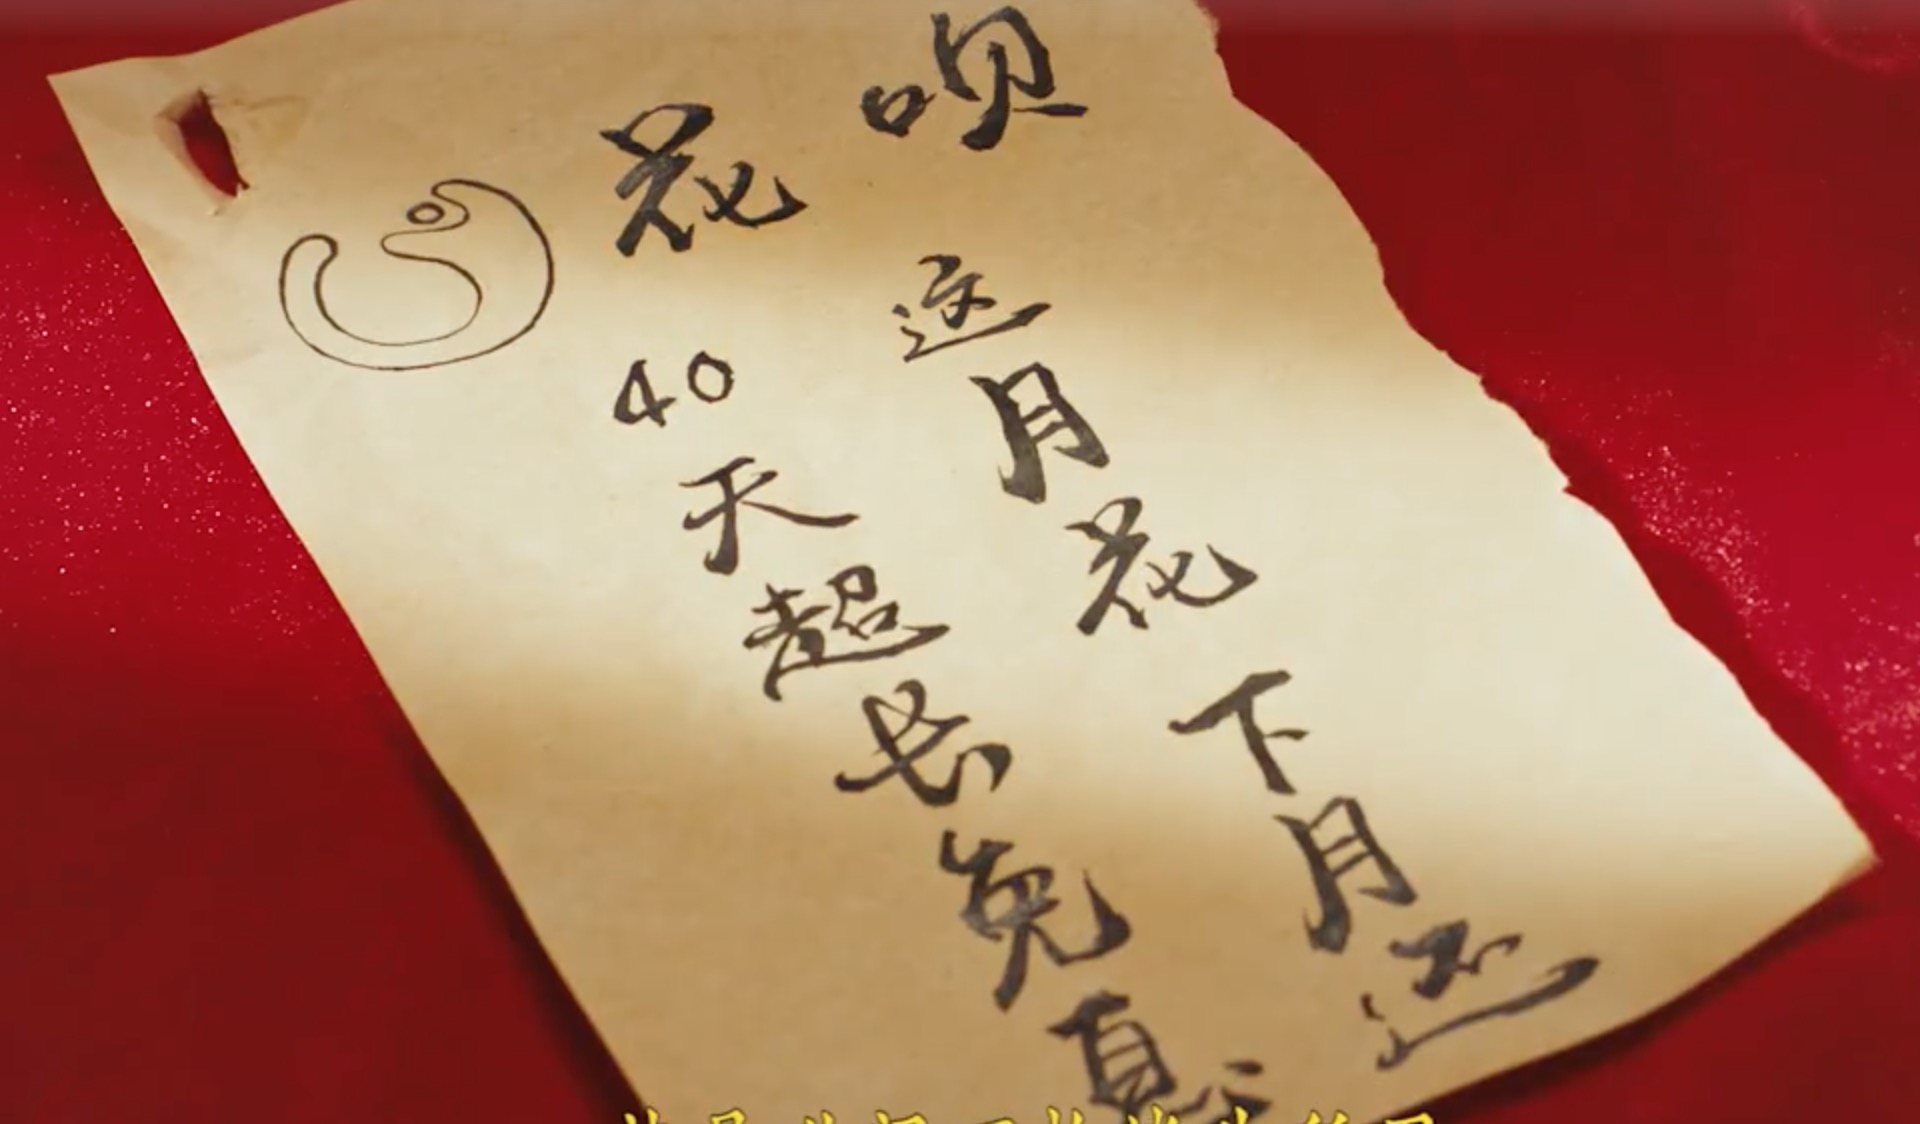 花呗
这月花下月还
40天超长免息